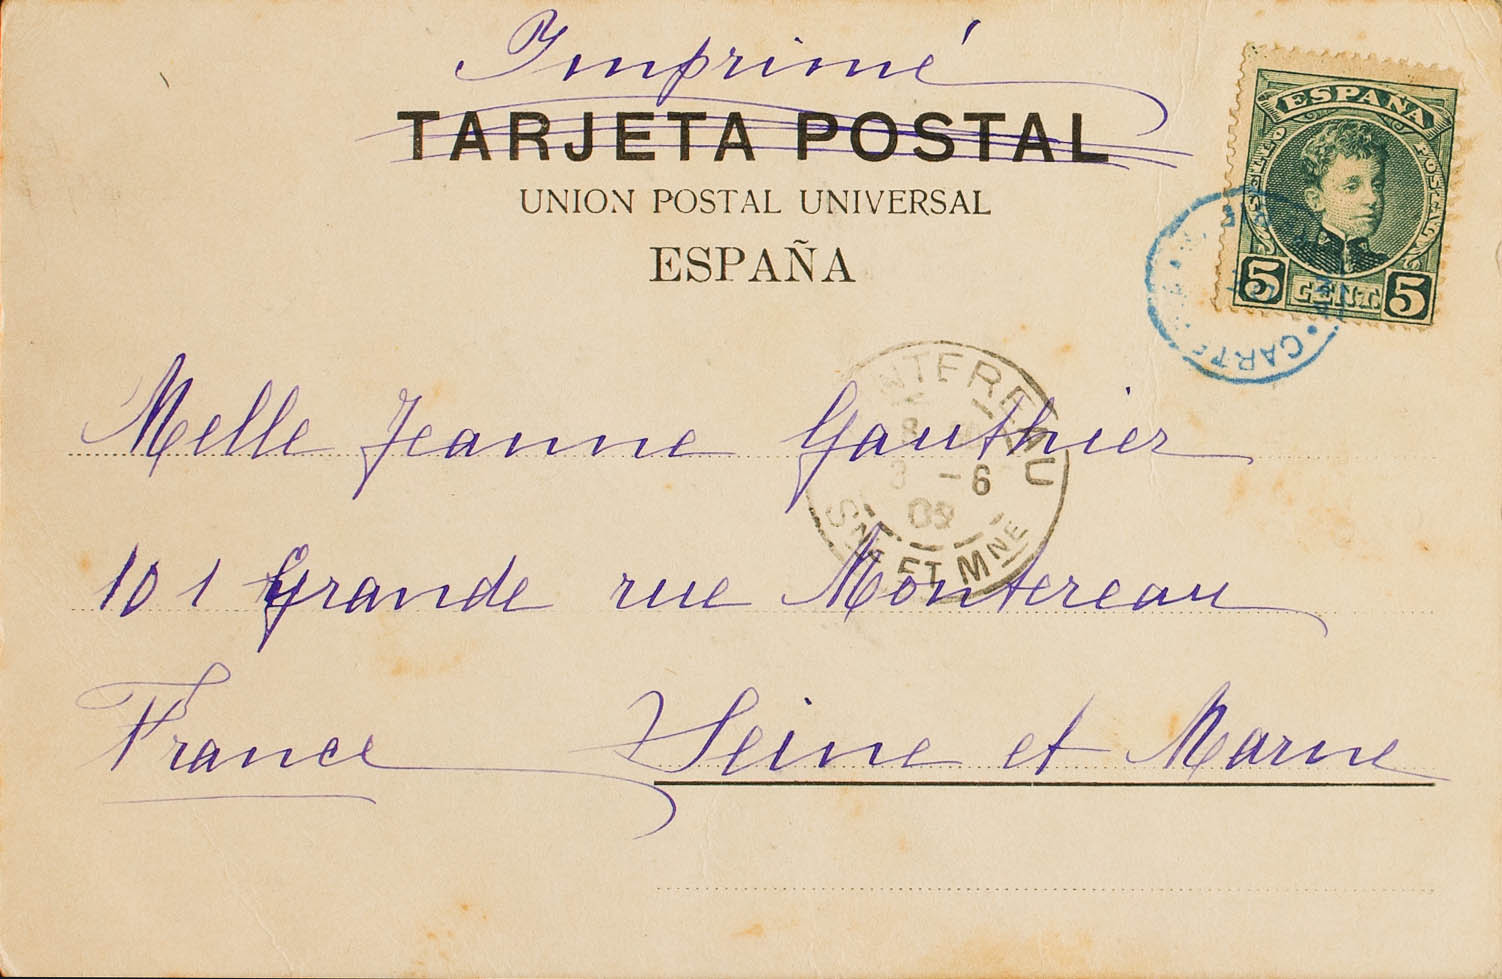 Imprimé
TARJETA POSTAL
UNION POSTAL UNIVERSAL
ESPAÑA
ESPAÑA
SELLO POSTAL
5 CENT. 5
CARTE
MONTEREAU
-6
09
SNE ET MNE
Melle Jeanne Gauthier
101 Grande rue Montereau
France Seine et Marne